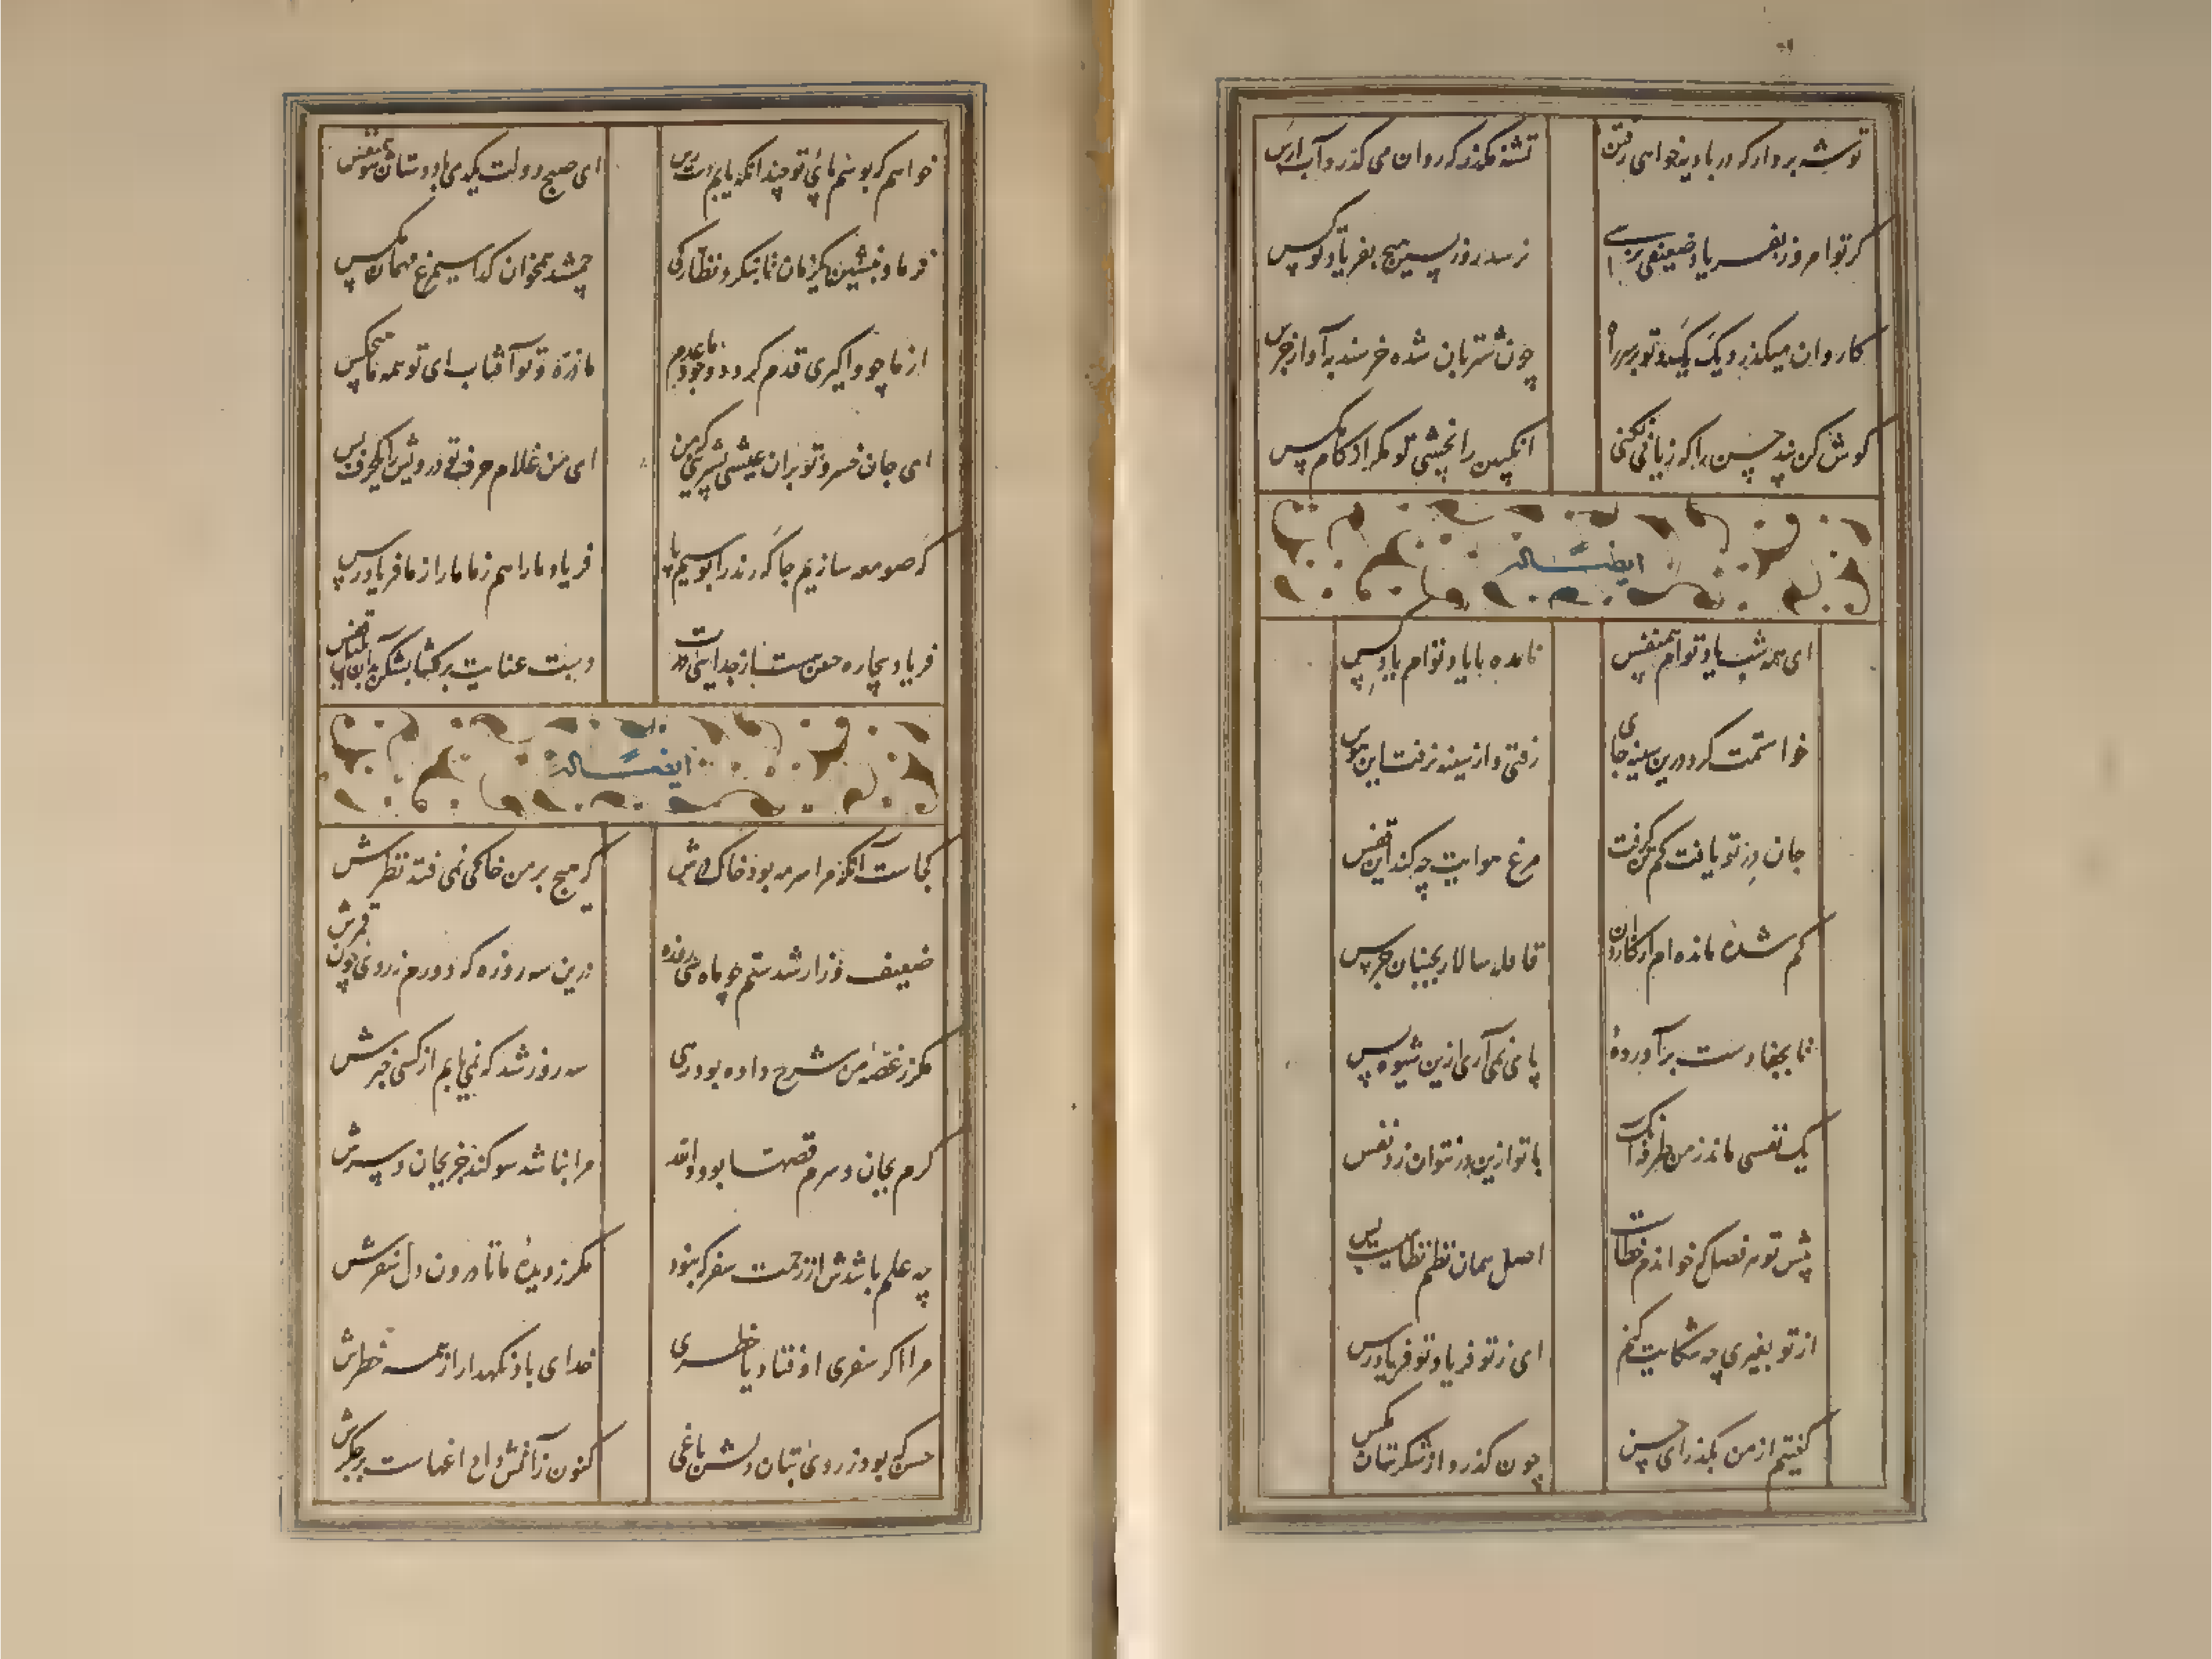 توشه بردار که در بادیه خواهی رفتن
تشنه مگذر که روان می گذرد آب ارس
گر تو امروز بفریاد ضعیفی نرسی
نرسد روز پسین هیچ بفریاد تو کس
کاروان میگذرد یک یک و تو بر سر راه
چون شتربان شده خرسند به آواز جرس
گوش کن پند حسن را که زیانی نکنی
انگبین را نچشی تو مگر از کام مگس
ایضا له
ای همه شب یاد توام همنفس
مانده بایاد توام یاد پس
خواستمت کرد درین سینه جای
رفتی و از سینه نرفت این هوس
جان در تو یافت کم تن گرفت
مرغ هوایت چه کند این قفس
گم شدهٔ مانده ام از کاروان
قافله سالار بجنبان جرس
تا بجفا دست برآوردهٔ
پا نمی آری ازین شیوه پس
یک نفسی ماند ز من طرفه آنک
باتو ازین در نتوان زد نفس
پیش تو هر فصل که خواندم خطاست
اصل همان نظم نظامیست پس
از تو بغیری چه شکایت کنم
ای ز تو فریاد تو فریادرس
گفتیم از من بگذر ای حسن
چون گذرد از شکرستان مگس
خواهم که بوسم پای تو چندانکه یابم دست رس
ای صبح دولت یکدمی با دوستان شو همنفس
فرما و بنشین یکزمان تا بنگرد نظارگی
جمشید همخوان گدا سیمرغ مهمان مگس
از ما چو واگیری قدم گردد وجود ما عدم
ما ذره و تو آفتاب ای تو همه ما هیچکس
ای جان خسرو تو بران عیشی بشیرین کن
ای من غلام حرف تو درویش را یکحرف بس
گر صومعه سازیم جا گر رند را بوسیم پا
فریاد ما را هم ز ما ما را از ما فریادرس
فریاد بیچاره حسن مست از جدایی
دست عنایت برگشا بشکن
ایضا له
کجاست آنکه مرا سرمه بود خاک درش
که هیچ بر من خاکی نمی فتد نظرش
ضعیف و زار شدستم چو ماه سی روزه
درین سه روزه که دورم ز روی چون قمرش
مگر ز غصه من شرح داده بود دری
سه روز شد که نمی یابم از کسی خبرش
گرم بجان و سرم قصدها بود واقعه
مرا نباشد سوگند جز بجان و سرش
چه علم باشدش از زحمت سفر که نبود
مگر ز دیدهٔ ما تا درون دل سفرش
مرا اگر سفری اوفتاد با خطری
خدای باد نگهدار از همه خطرش
حسن که بود ز روی بتان دلش باغی
کنون ز آتش داغهاست بر جگرش